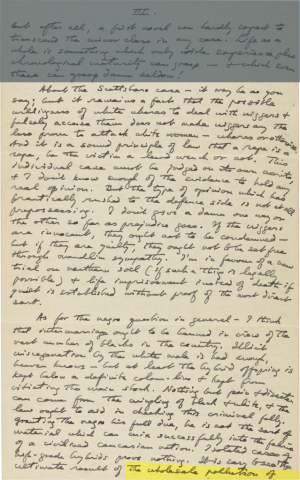 III.
but after all, a first novel can hardly expect to
transcend the minor class in any case. Life as a
whole is something which only wide experience, plus
chronological maturity can grasp — & which even
these can grasp damn seldom!
About the Scottsboro case — it may be as you
say; but it remains a fact that the possible
willingness of white whores to deal with niggers &
falsely accuse them does not make niggers any the
less prone to attack white women — whores or otherwise.
And it is a sound principle of law that a rape is a
rape, be the victim a blond wench or not. This
individual case must be judged on its own merits
& I don't know enough of the evidence to hold any
real opinion. But the type of opinion which has
frantically rushed to the defence side is not at all
prepossessing. I don't give a damn one way or
the other so far as prejudice goes. If the niggers
are innocent, they ought not to be condemned —
but if they are guilty, they ought not to be set free
through maudlin sympathy. I'm in favour of a new
trial on northern soil (if such a thing is legally
possible) & life imprisonment instead of death if
guilt is established without proof of the most direct
sort.
As for the negro question in general — I think
that intermarriage ought to be banned in view of the
vast number of blacks in the country. Illicit
miscegenation by the white male is bad enough,
heaven knows — but at least the hybrid offspring is
kept below a definite colour-line & kept from
vitiating the main stock. Nothing but pain & disaster
can come from the mingling of black & white, & the
law ought to aid in checking this criminal folly.
Granting the negro his full due, he is not the sort of
material which can mix successfully into the fabric
of a civilised Caucasian nation. Isolated cases of
high-grade hybrids prove nothing. It is easy to see the
ultimate result of the wholesale pollution of